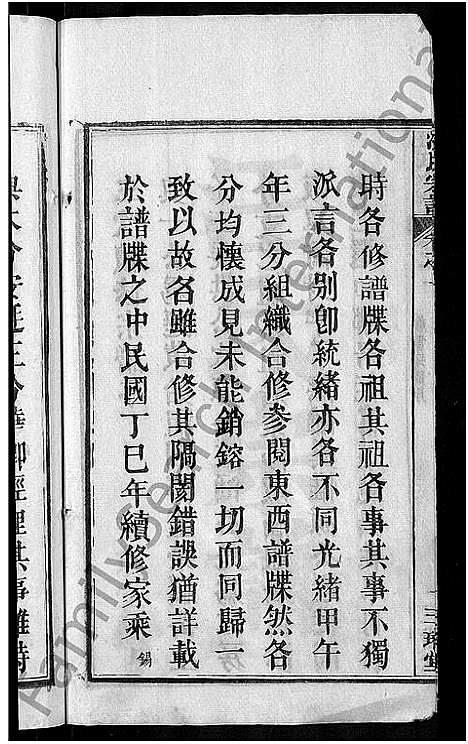 時各修譜牒各祖其祖各事其事不獨
派言各别卽統緒亦各不同光緒甲午
年三分組織合修參閱東西譜牒然各
分均懷成見未能銷鎔一切而同歸一
致以故名雖合修其隔閡錯誤猶詳載
於譜牒之中民國丁巳年續修家乘錫
FamilySearch International